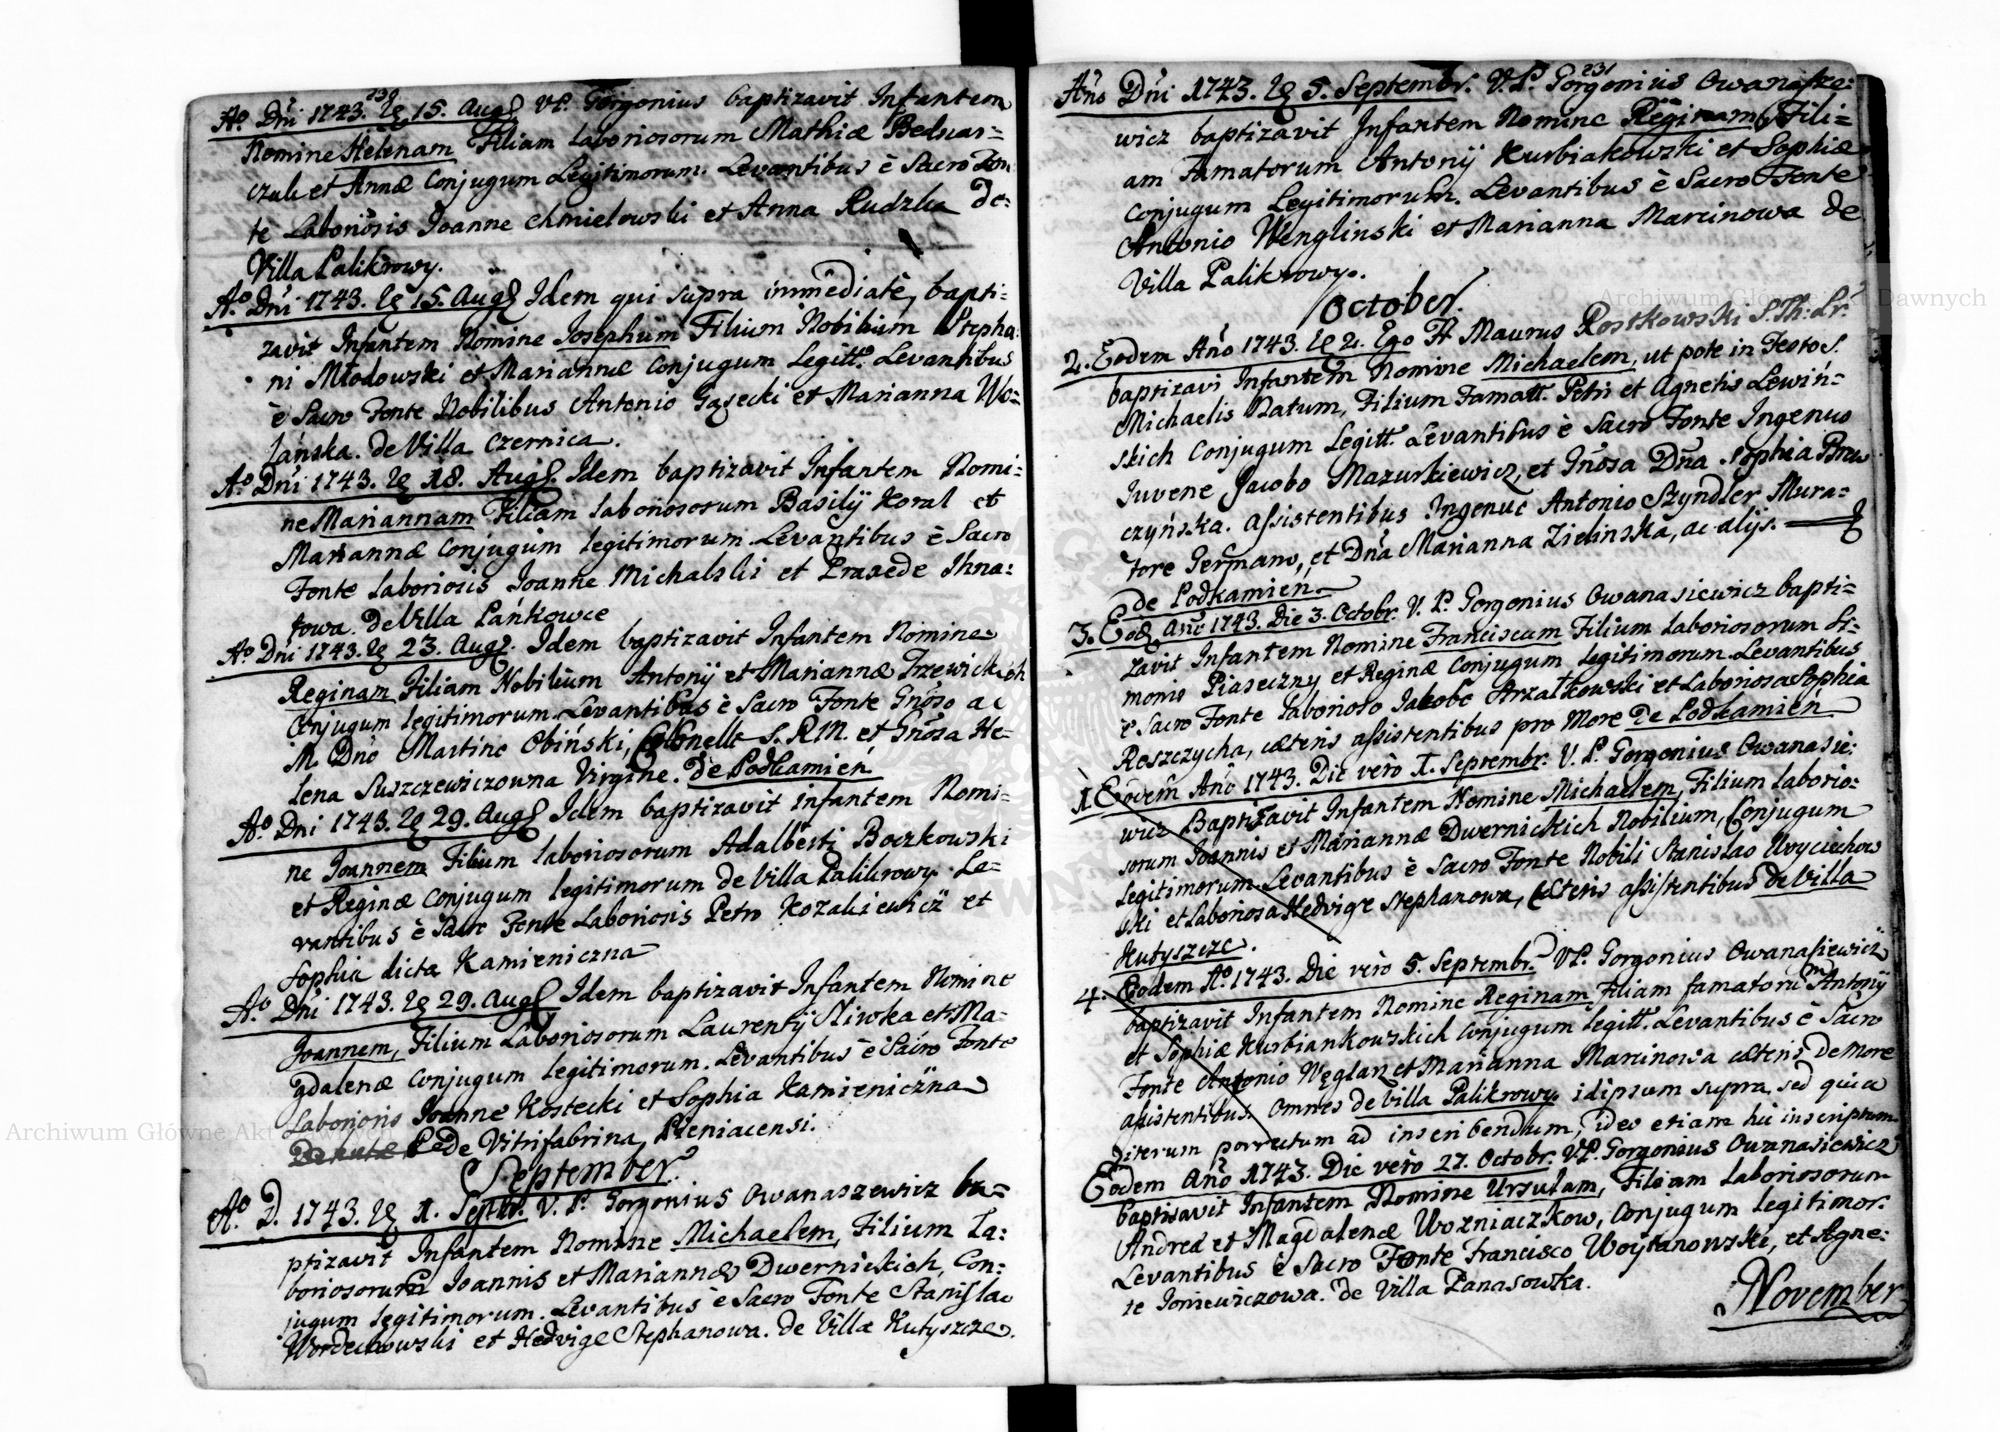 230
Aº. Dni 1743. 15. Aug. VP. Gorgonius baptizavit Infantem
Nomine Helenam Filiam laboriosorum Mathiæ Bednar=
czuk et Annæ Conjugum Legitimorum. Levantibus è Sacro Fon
te Laboriosis Joanne Chmielowski et Anna Rudzka de=
Villa Palikrowy.
Aº. Dni 1743. 15. Aug. Idem qui supra immediatè, bapti=
zavit Infantem Nomine Josephum Filium Nobilium Stepha
ni Młodowski et Mariannæ Conjugum Legitt. Levantibus
è Sacro Fonte Nobilibus Antonio Gąsecki et Marianna Wo=
lańska. de Villa Czernica.
Aº. Dni 1743. 18. Aug. Idem baptizavit Infantem Nomi=
ne Mariannam Filiam laboriosorum Basilij Koral et
Mariannæ Conjugum legitimorum Levantibus è Sacro
Fonte laboriosis Joanne Michalski et Praxede Ihna=
towa. de Villa Pańkowce
Aº. Dni 1743. 23. Aug. Idem baptizavit Infantem Nomine
Reginam Filiam Nobilium Antonij et Mariannæ Trzewickich
Conjugum legitimorum. Levantibus è Sacro Fonte Gnoso ac
M. Dno Martino Obiński, Colonello S. R. M. et Gnosa He=
lena Suszczewiczowna Virgine. de Podkamień
Aº. Dni 1743. 29. Aug. Idem baptizavit infantem Nomi=
ne Joannem Filium laboriosorum Adalberti Boczkowski
et Reginæ Conjugum legitimorum de Villa Palikrowy. Le=
vantibus è Sacro Fonte Laboriosis Petro Kozakiewicz et
Sophia dicta Kamieniczna
Aº. Dni 1743. 29. Aug. Idem baptizavit Infantem Nomine
Joannem, Filium Laboriosorum Laurentij Sliwka et Ma=
gdalenæ Conjugum legitimorum. Levantibus è Sacro Fonte
Laboriosis Joanne Kostecki et Sophia Kamieniczna
de Vitrifabrina Pieniacensi.
September
Aº. D. 1743. 1. Septbr. V. P. Gorgonius Owanaszewicz ba=
ptizavit Infantem Nomine Michaelem, Filium La=
boriosorum Joannis et Mariannæ Dwernickich, Con=
jugum legitimorum. Levantibus è Sacro Fonte Stanislao
et Hedvige Stephanowa. de Villa Hutyszcze.
231
Año Dni 1743. 5. Septembr. V. P. Gorgonius Owanasie=
wicz baptizavit Infantem Nomine Reginam Fili=
am Famatorum Antonij Kurbiakowski et Sophiæ
Conjugum Legitimorum. Levantibus è Sacro Fonte
Antonio Wenglinski et Marianna Marcinowa de
Villa Palikrowy.
October.
2. Eodem Año 1743. 2. Ego Fr Maurus Rostkowski S. Th: Lr.
baptizavi Infantem Nomine Michaelem, ut pote in Festo S.
Michaelis Natum, Filium Famatt. Petri et Agnetis Lewiń=
skich Conjugum Legitt. Levantibus è Sacro Fonte Ingenuo
Juvene Jacobo Mazurkiewicz, et Gnosa Dna Sophia Bro
czyńska. assistentibus Ingenuè Antonio Szyndler Mura=
tore Germano, et Dna Marianna Zielinska, ac alijs.
de Podkamień.
3. Eod Año 1743. Die 3. Octobr. V. P. Gorgonius Owanasiewicz bapti=
zavit Infantem Nomine Franciscum Filium laboriosorum Si=
monis Piaseczny et Reginæ Conjugum legitimorum. Levantibus
è Sacro Fonte laborioso Jakobo Arzatkowski et Laboriosa Sophia
Roszczycha, cæteris assistentibus pro More de Podkamień
1. Eodem Año 1743. Die vero 1. Septembr. V. P. Gorgonius Owanasie:
wicz Baptizavit Infantem Nomine Michaelem, Filium laborio=
sorum Joannis et Mariannæ Dwernickich Nobilium, Conjugum
legitimorum. Levantibus è Sacro Fonte Nobili Stanislao Woyciechow
ski et laboriosa Hedvige Stephanowa, cæteris assistentibus de Villa
Hutyszcze.
4. Eodem Aº. 1743. Die vero 5. Septembr. VP. Gorgonius Owanasiewicz
baptizavit Infantem Nomine Reginam, Filiam famatorum Antonij
et Sophiæ Kurbiankowskich Conjugum legitt. Levantibus è Sacro
Fonte Antonio Węglan et Marianna Marcinowa cæteris, de More
assistentibus. Omnes de Villa Palikrowy. idipsum supra, sed quia
iterum porrectum ad inscribendum, ideo etiam hic inscriptum
Eodem Año 1743. Die vero 27. Octobr. VP. Gorgonius Owanasiewicz
baptisavit Infantem Nomine Ursulam, Filiam laboriosorum
Andreæ et Magdalenæ Wozniaczkow, Conjugum legitimor.
Levantibus è Sacro Fonte Francisco Woytanowski, et Agne=
te Joniewiczowa. de Villa Panasowka.
November
Archiwum Główne Akt Dawnych
Archiwum Główne Akt Dawnych